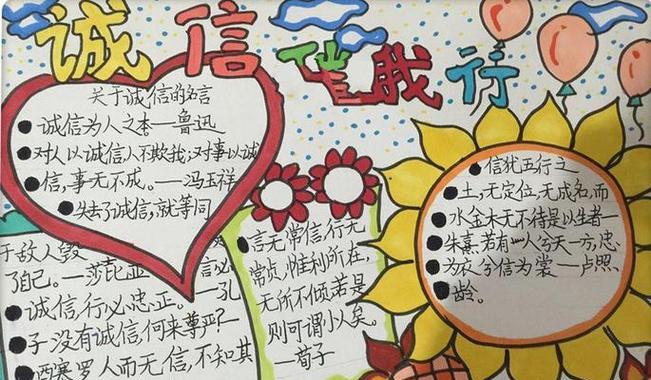 诚信伴我行
关于诚信的名言
诚信为人之本—鲁迅
对人以诚信人不欺我;对事以诚
信,事无不成。—冯玉祥
失去了诚信,就等同
于敌人毁
了自己。—莎士比亚
言必
诚信,行必忠正。—孔
子 没有诚信,何来尊严?—
西塞罗 人而无信,不知其
言无常信,行无
常贞,惟利所在,
无所不倾若是
则可谓小人矣。
—荀子
信犹五行之
土,无定位,无成名,而
水金木无不待是以生者—
朱熹.若有一人兮天一方,忠
为衣兮信为裳—卢照
龄。